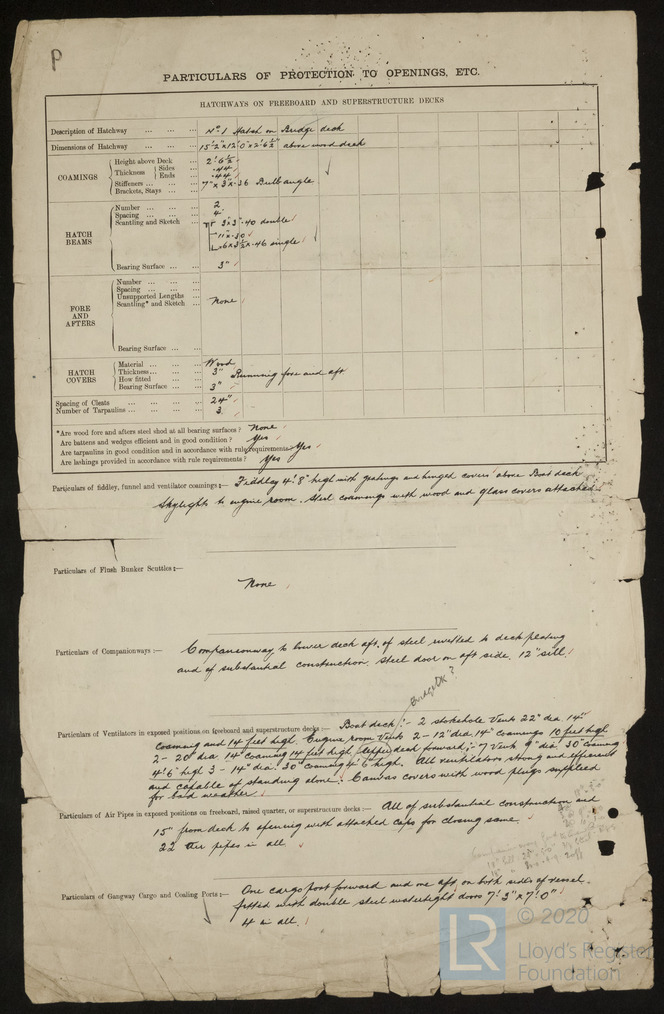 P
PARTICULARS OF PROTECTION TO OPENINGS, ETC.
HATCHWAYS ON FREEBOARD AND SUPERSTRUCTURE DECKS
Description of Hatchway ... ... ... No 1 Hatch on Bridge deck
Dimensions of Hatchway ... ... ... 15'.2"x12'.0"x2'.6½" above wood deck
COAMINGS
Height above Deck ... 2'.6½"
Thickness { Sides ... .44
Ends ... .44
Stiffeners ... ... ... 7"x3"x.36 Bulb angle
Brackets, Stays ... ...
HATCH BEAMS
Number ... ... ... 2
Spacing ... ... ... 4'
Scantling and Sketch ... 3x3".40 double
11"x.30
6x3½x.46 single
Bearing Surface ... ... 3"
FORE AND AFTERS
Number ... ... ...
Spacing ... ... ...
Unsupported Lengths ...
Scantling* and Sketch ... None
Bearing Surface ... ...
HATCH COVERS
Material ... ... ... Wood
Thickness ... ... ... 3"
How fitted ... ... Running fore and aft
Bearing Surface ... ... 3"
Spacing of Cleats ... ... ... ... 24"
Number of Tarpaulins ... ... ... ... 3
*Are wood fore and afters steel shod at all bearing surfaces? None
Are battens and wedges efficient and in good condition? Yes
Are tarpaulins in good condition and in accordance with rule requirements Yes
Are lashings provided in accordance with rule requirements? Yes
Particulars of fiddley, funnel and ventilator coamings:— Fiddley 4'.8" high with gratings and hinged covers above Boat deck
Skylights to engine room. Steel coamings with wood and glass covers attached
Particulars of Flush Bunker Scuttles:—
None
Particulars of Companionways:— Companionway to lower deck aft, of steel rivetted to deck plating
and of substantial construction. Steel door on aft side. 12" sill.
Particulars of Ventilators in exposed positions on freeboard and superstructure decks:— Boat deck:- 2 stokehole Vents 22" dia 14"
coaming and 14 feet high. Engine room Vents 2- 12" dia 14" coamings 10 feet high
2- 20" dia 14" coaming 14 feet high. Upper deck forward:- 7 Vents 9" dia 30" coaming
4'.6" high 3 - 14" dia. 30" coaming 4'.6" high. All ventilators strong and efficient
and capable of standing alone. Canvas covers with wood plugs supplied
for bad weather
Particulars of Air Pipes in exposed positions on freeboard, raised quarter, or superstructure decks:— All of substantial construction and
15" from deck to opening with attached caps for closing same.
22 air pipes in all
Particulars of Gangway Cargo and Coaling Ports:— One cargo port forward and one aft, on both sides of vessel.
fitted with double steel watertight doors 7'.3" x 7'.0"
4 in all.
LR
© 2020
Lloyd's Register
Foundation